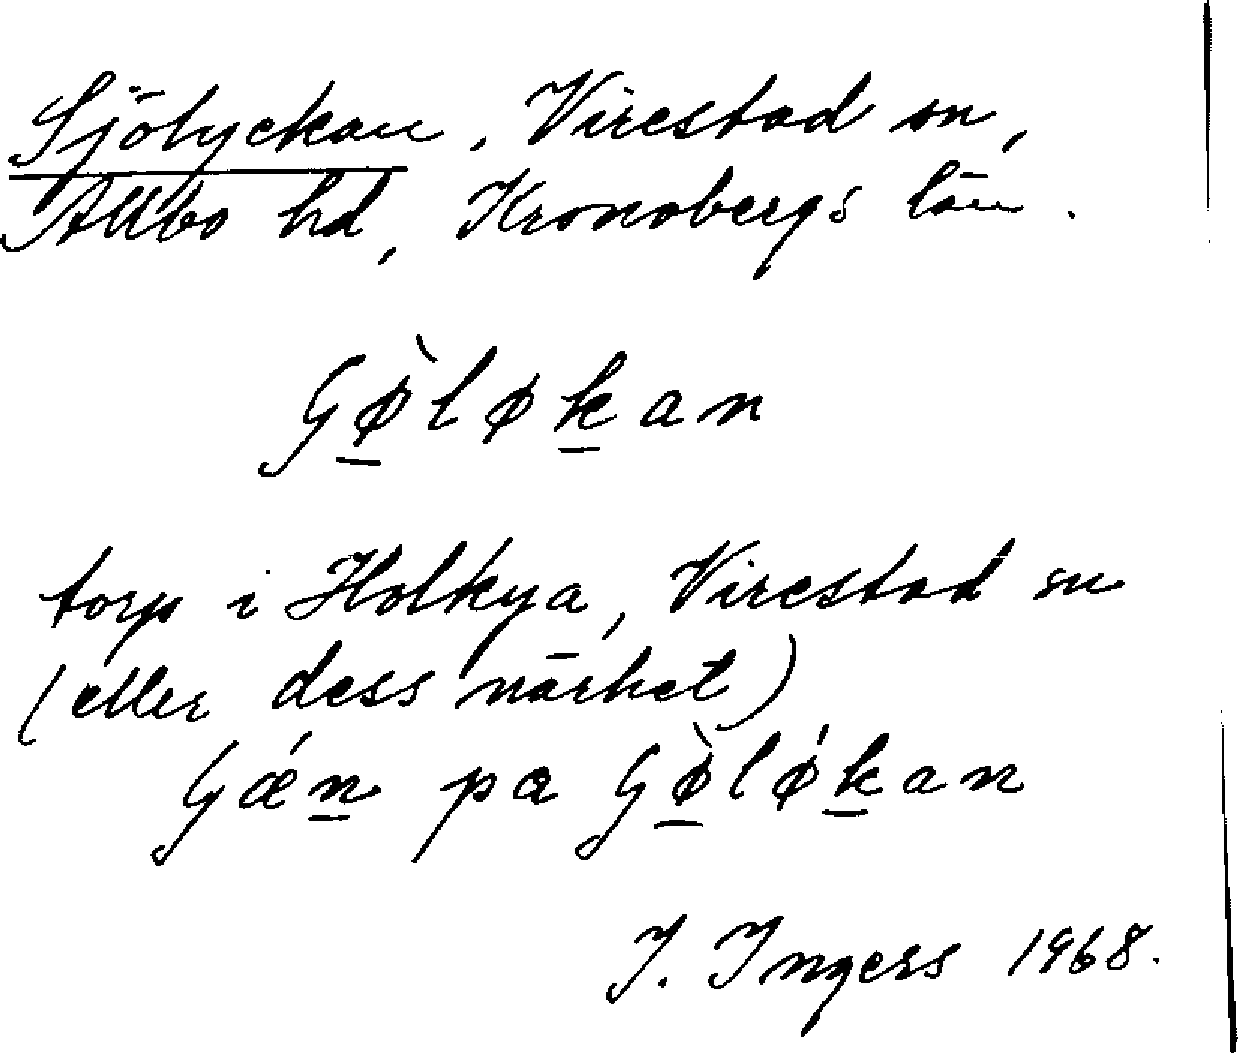 Sjölyckan, Virestad sn,
Allbo hd, Kronobergs län.
Gø̀løkan
torp i Holkya, Virestad sn
(eller dess närhet)
Gǽn pa Gø̀lǿkan
J. Ingers 1968.